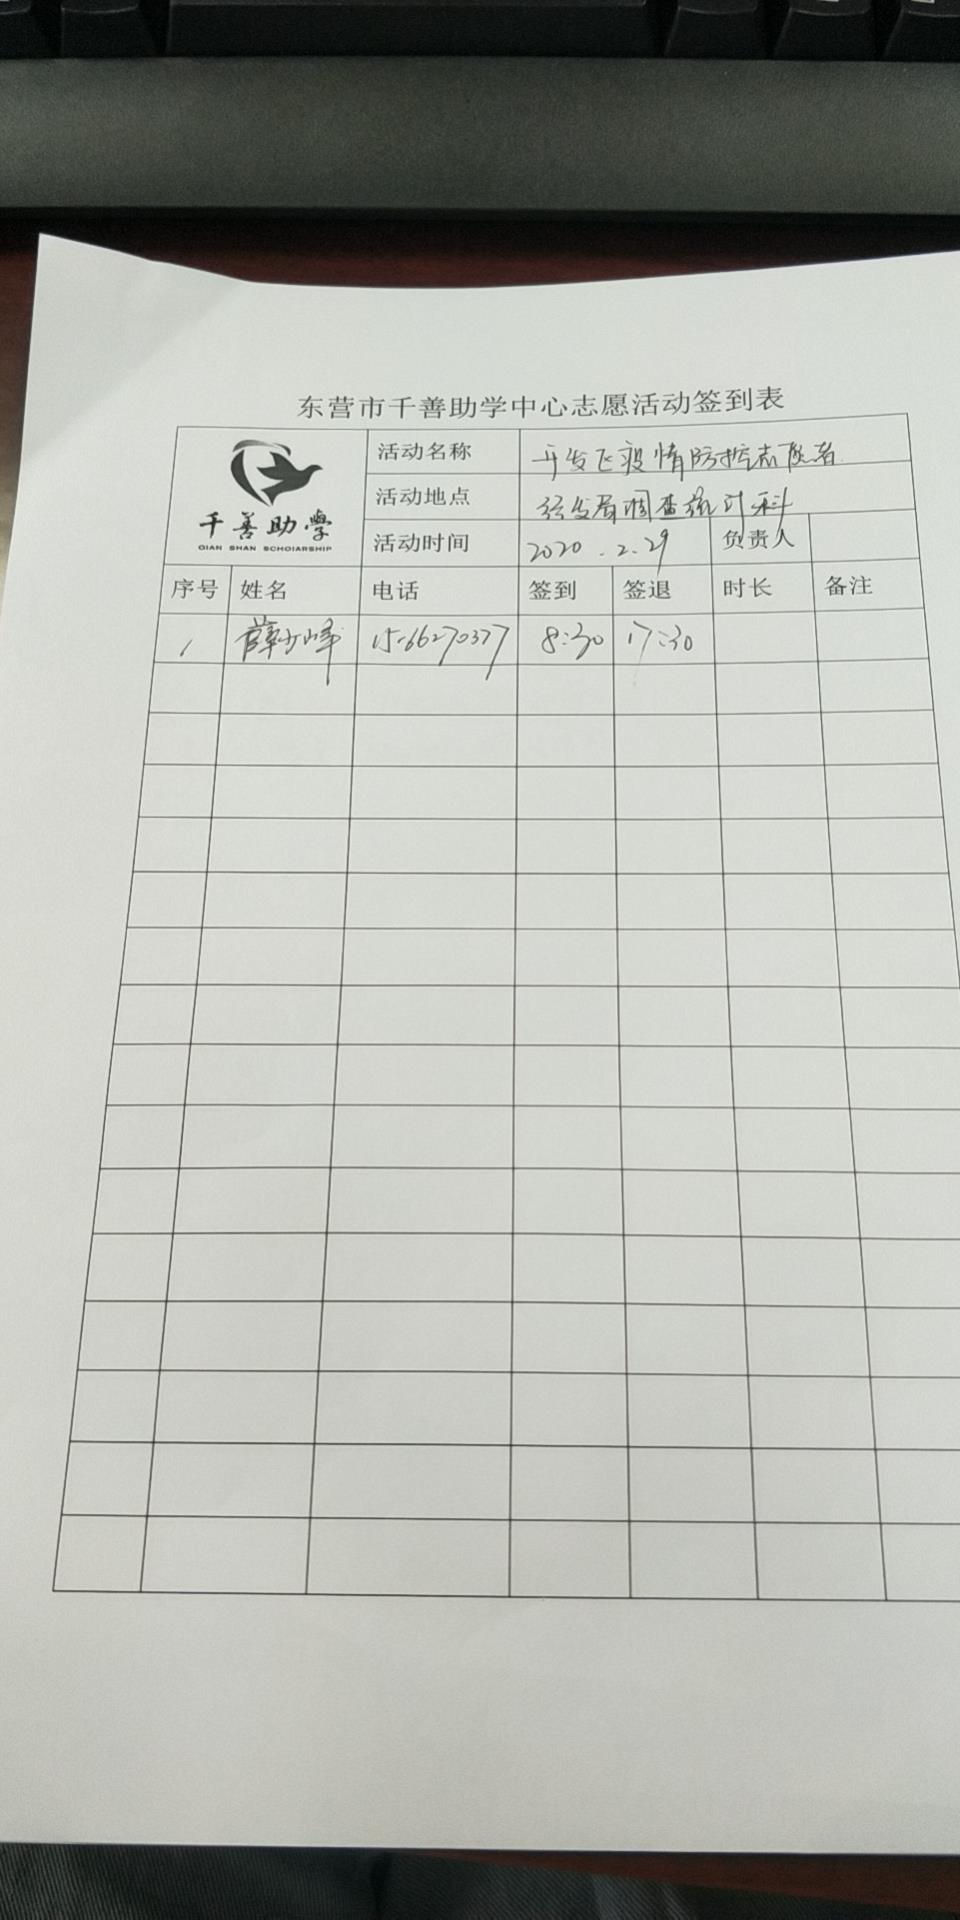 东营市千善助学中心志愿活动签到表
千善助学
QIAN SHAN SCHOIARSHIP
活动名称 开发区疫情防控志愿者
活动地点 经发局调查统计科
活动时间 2020.2.29 负责人
序号 姓名 电话 签到 签退 时长 备注
1 薛 峰 8:30 17:30